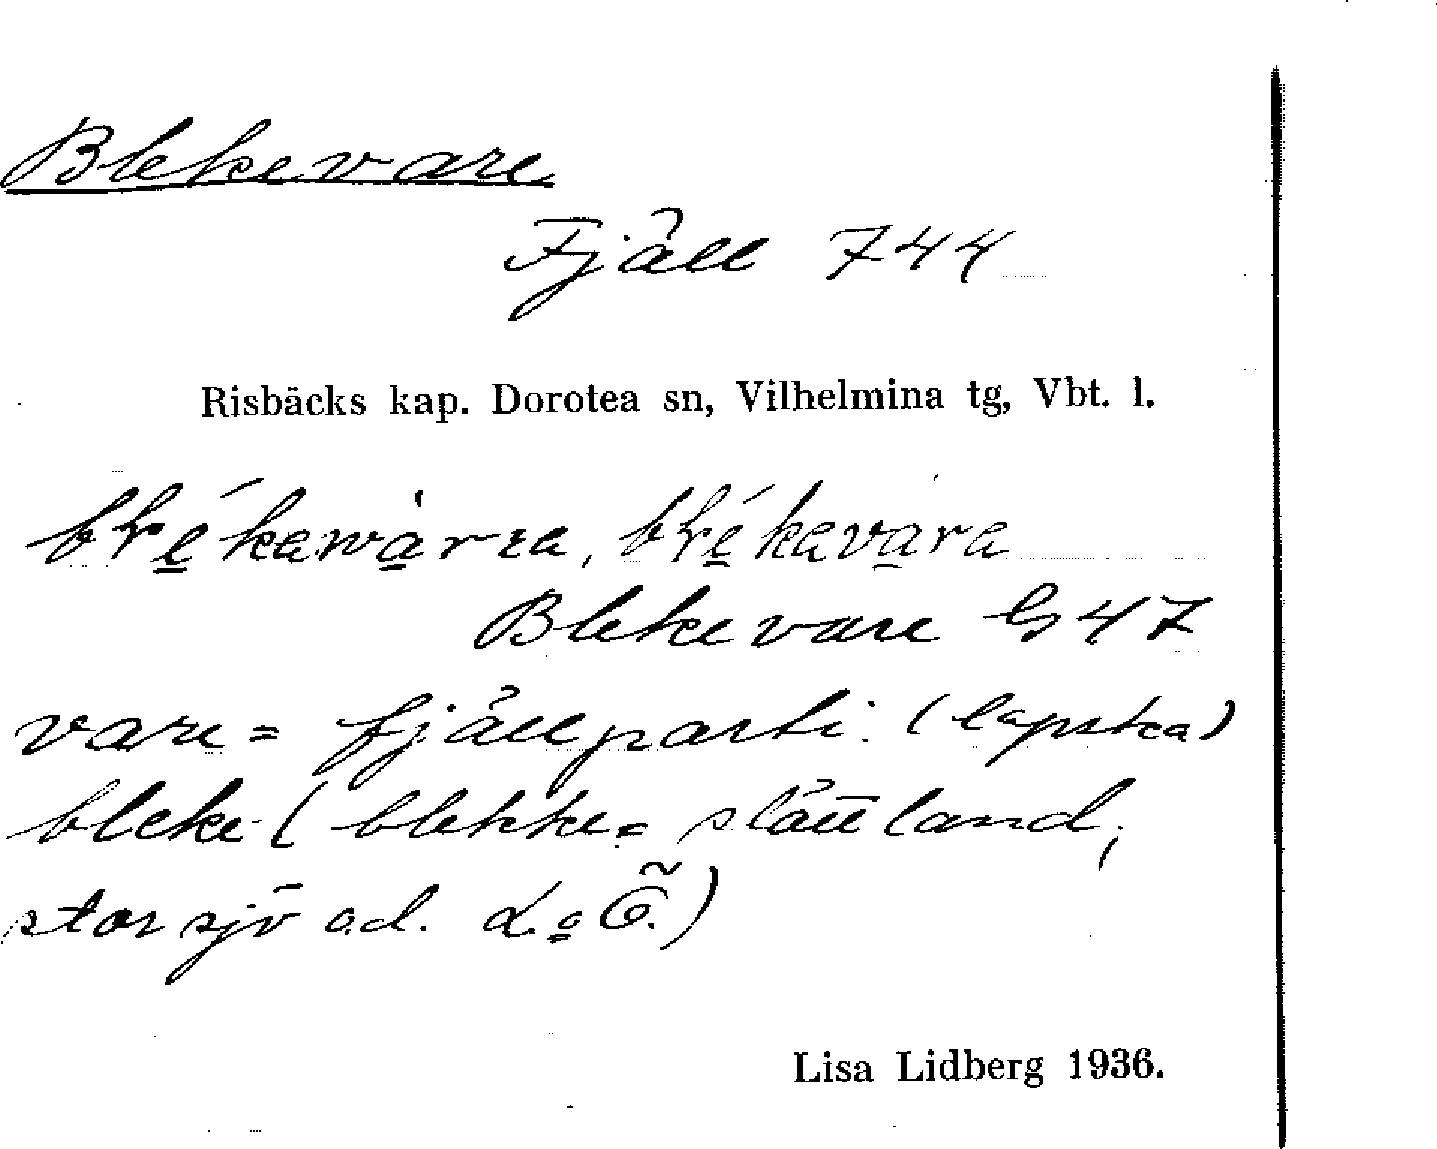 Blekevare
Fjäll 744
Risbäcks kap. Dorotea sn, Vilhelmina tg, Vbt. l.
Blekevare G 47
vare = fjällparti (lapska)
bleke (blekke = slättland,
stor sjö o.d. L. o Ö.)
Lisa Lidberg 1936.